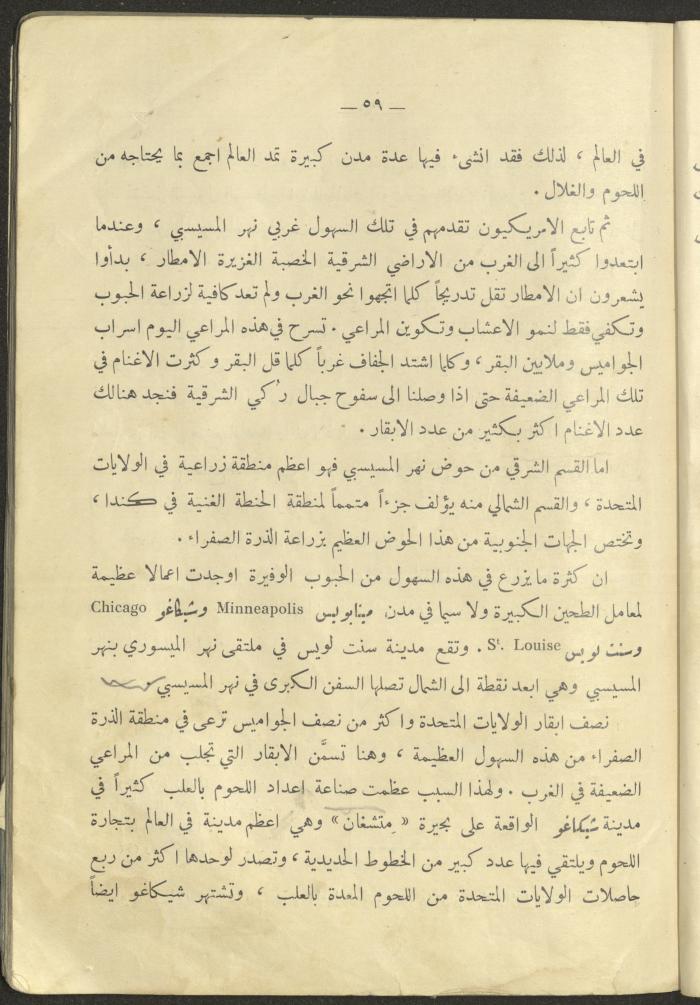 — ٥٩ —
في العالم ، لذلك فقد انشىء فيها عدة مدن كبيرة تمد العالم اجمع بما يحتاجه من
اللحوم والغلال .
ثم تابع الامريكيون تقدمهم في تلك السهول غربي نهر المسيسبي ، وعندما
ابتعدوا كثيراً الى الغرب من الاراضي الشرقية الخصبة الغزيرة الامطار ، بدأوا
يشعرون ان الامطار تقل تدريجاً كلما اتجهوا نحو الغرب ولم تعد كافية لزراعة الحبوب
وتكفي فقط لنمو الاعشاب وتكوين المراعي . تسرح في هذه المراعي اليوم اسراب
الجواميس وملايين البقر ، وكلما اشتد الجفاف غرباً كلما قل البقر وكثرت الاغنام في
تلك المراعي الضعيفة حتى اذا وصلنا الى سفوح جبال رُكي الشرقية فنجد هنالك
عدد الاغنام اكثر بكثير من عدد الابقار .
اما القسم الشرقي من حوض نهر المسيسبي فهو اعظم منطقة زراعية في الولايات
المتحدة ، والقسم الشمالي منه يؤلف جزءاً متمماً لمنطقة الحنطة الغنية في كندا ،
وتختص الجهات الجنوبية من هذا الحوض العظيم بزراعة الذرة الصفراء .
ان كثرة ما يزرع في هذه السهول من الحبوب الوفيرة اوجدت اعمالا عظيمة
لمعامل الطحين الكبيرة ولا سيما في مدن مينابوليس Minneapolis وشيكاغو Chicago
وسنت لويس St. Louise . وتقع مدينة سنت لويس في ملتقى نهر الميسوري بنهر
المسيسبي وهي ابعد نقطة الى الشمال تصلها السفن الكبرى في نهر المسيسبي
نصف ابقار الولايات المتحدة واكثر من نصف الجواميس ترعى في منطقة الذرة
الصفراء من هذه السهول العظيمة ، وهنا تسمَّن الابقار التي تجلب من المراعي
الضعيفة في الغرب . ولهذا السبب عظمت صناعة اعداد اللحوم بالعلب كثيراً في
مدينة شيكاغو الواقعة على بحيرة « مِتشغان » وهي اعظم مدينة في العالم بتجارة
اللحوم ويلتقي فيها عدد كبير من الخطوط الحديدية ، وتصدر لوحدها اكثر من ربع
حاصلات الولايات المتحدة من اللحوم المعدة بالعلب ، وتشتهر شيكاغو ايضاً